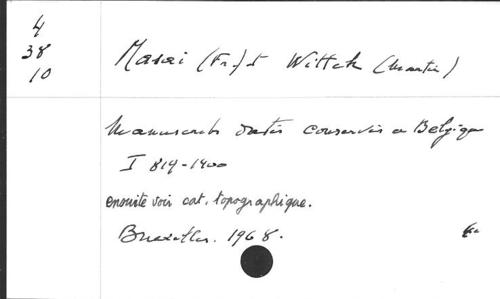 4
38
10
Masai (Fr.) et Wittek (Martin)
Manuscrits datés conservés en Belgique
I 819-1400
ensuite voir cat. topographique.
Bruxelles. 1968.